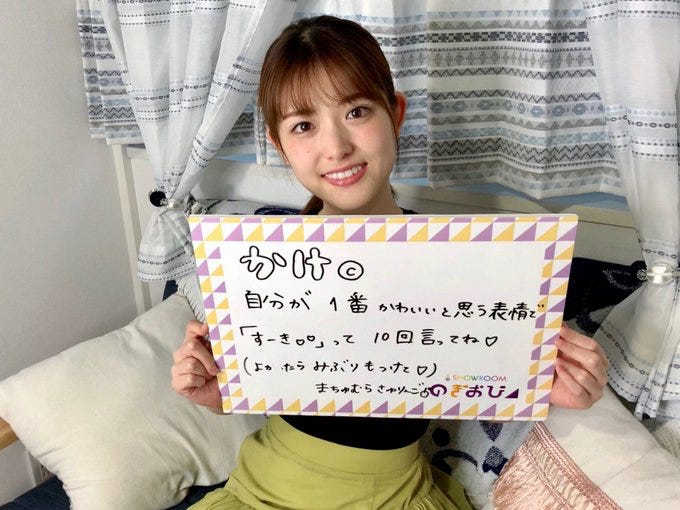 かけ©
自分が 1番 かわいいと思う表情で
「すーき♡♡」って 10回言ってね♡
(よかったら みぶりもつけて♡)
SHOWROOM
まちゅむらさゆりんご のぎおび